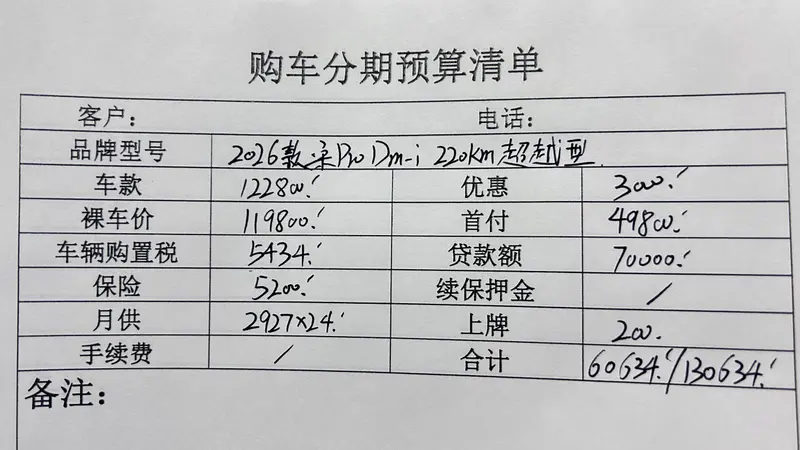 购车分期预算清单
客户: 电话:
品牌型号 2026款宋Pro Dm-i 220km超越型
车款 122800. 优惠 3000.
裸车价 119800. 首付 49800.
车辆购置税 5434. 贷款额 70000.
保险 5200. 续保押金 /
月供 2927×24. 上牌 200.
手续费 / 合计 60634./130634.
备注: